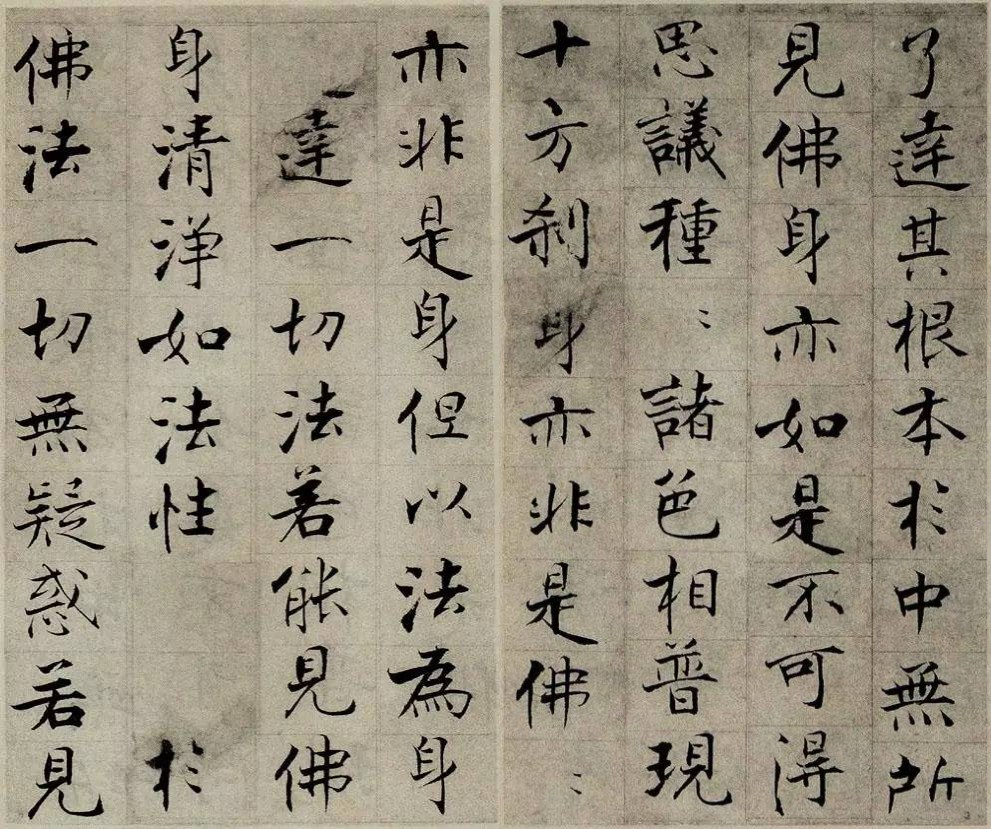 了達其根本於中無所
見佛身亦如是不可得
思議種〻諸色相普現
十方刹身亦非是佛〻
亦非是身但以法為身
達一切法若能見佛
身清淨如法性 於
佛法一切無疑惑若見